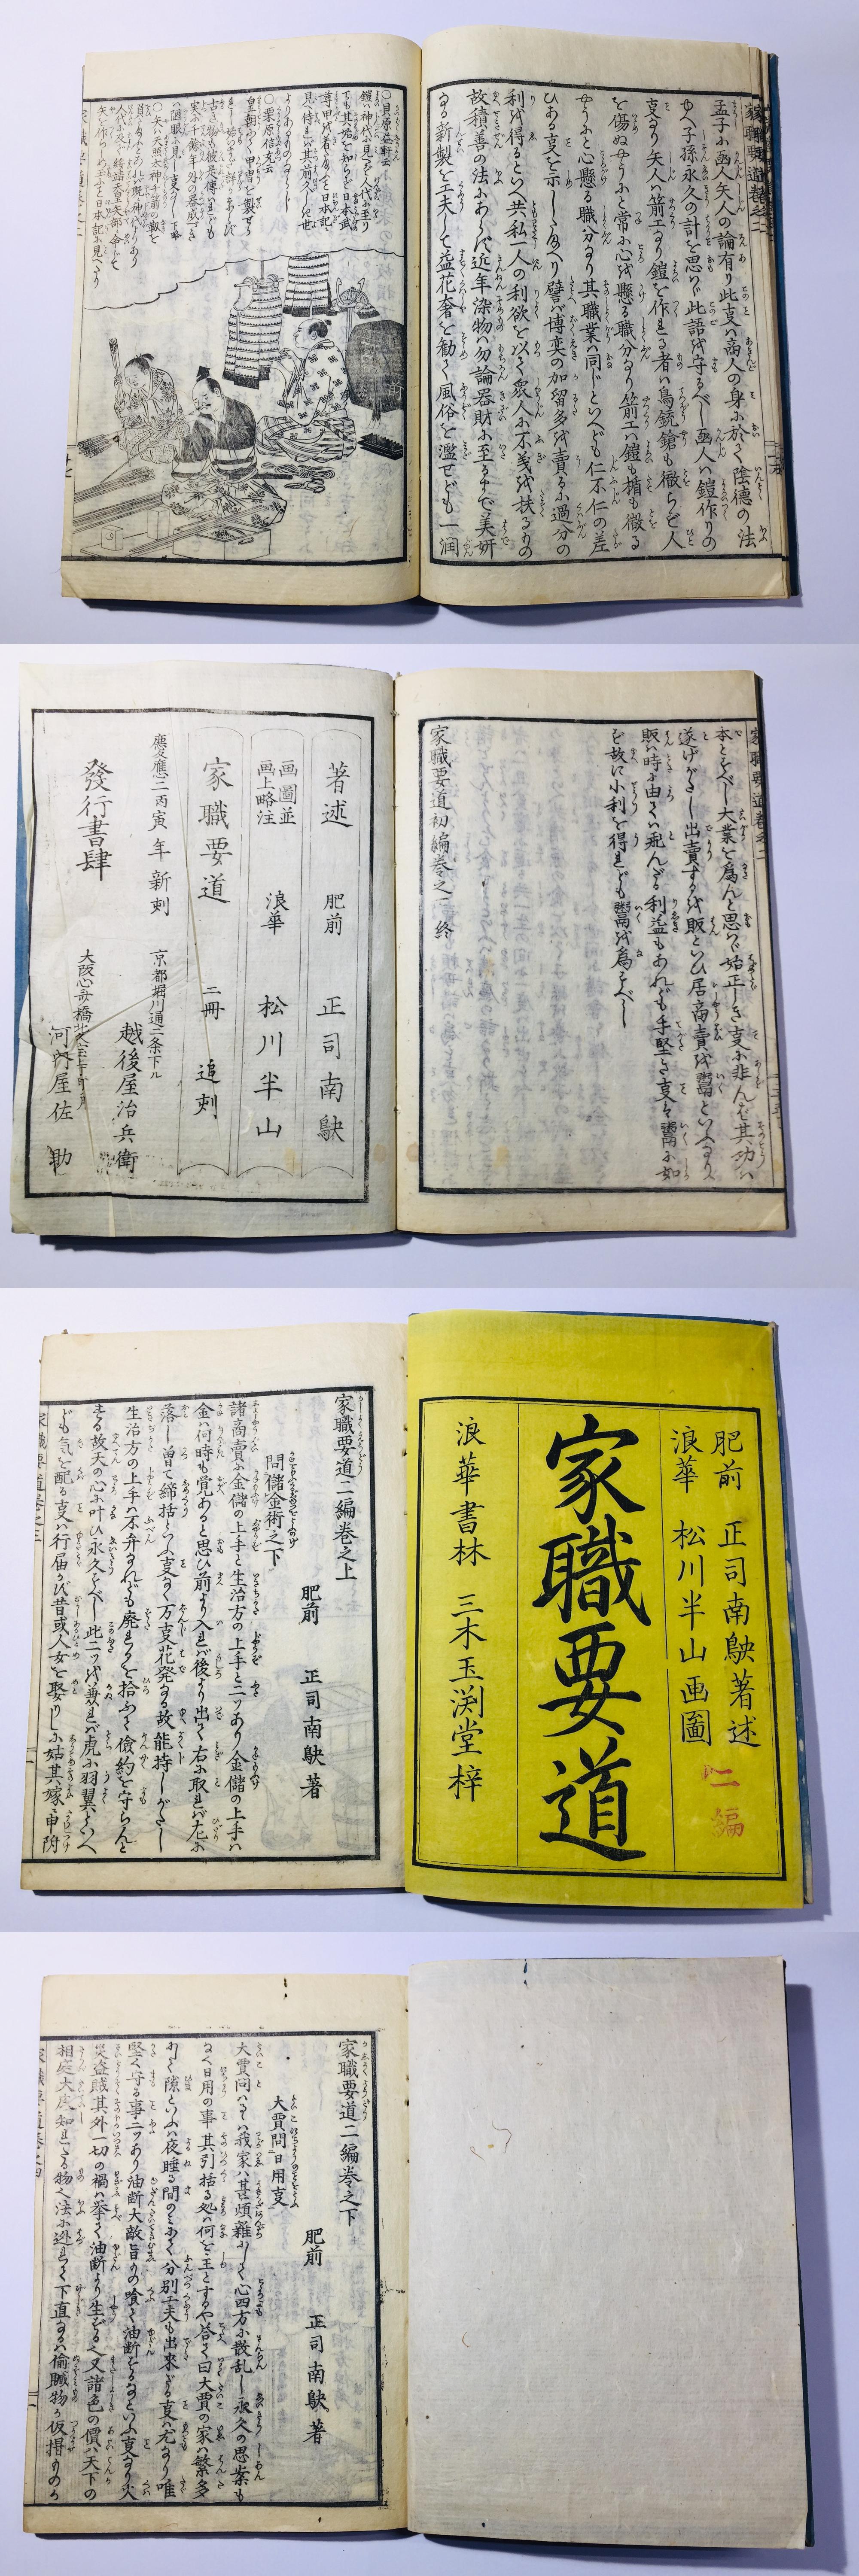 孟子に函人矢人の論有り此㕝ハ商人の身に於て陰徳の法
にて子孫永久の計を思ハヾ此語を守るべし函人ハ鎧作りの
㕝なり矢人ハ箭工なり鎧を作れる者ハ鳥銃鎗も徹らせず人
を傷ぬやうにと常に心を懸る職分なり箭工ハ鎧も楯も徹る
やうにと心懸る職分なり其職業ハ同じといへども仁不仁の差
ひある㕝を示したまへり譬バ博奕の加留多を賣るに過分の
利を得るといへ共私一人の利欲を以て衆人に不義を扶るもの
故積善の法にあらず近年染物ハ勿論器財に至るまで美妍
なる新製を工夫して益花奢を勧て風俗を濫せども一潤
○貝原益軒云
鎧ハ神代に見へて人代に至り
ても其始を知らず日本武
尊甲を着たまふと日本記に
見へ侍れバ其前久しき世
よりあるものなるべし
○栗原信充云
○矢ハ天照太神千箭の靫を
負たまふとあれバ既神代よりあり
人代に及び綏靖天皇矢部に命じて
矢を作らしめ玉ふと日本記に見へたり
家職要道巻之二
本とすべし大業を爲んと思ハヾ始正しき㕝に非んバ其功ハ
遂げがたし出賣するを販といひ居商賣を鬻といへるなり
販ハ時に由てハ飛んだる利益もあれども手堅き㕝ハ鬻に如
ず故に小利を得れども鬻を爲べし
家職要道初編巻之二終
著述 肥前 正司南鴃
画圖並画上略注 浪華 松川半山
家職要道 二冊 追刻
慶應二丙寅年新刻
發行書肆
京都堀川通二条下ル
越後屋治兵衛
河内屋佐助
肥前 正司南鴃著述
浪華 松川半山画圖
二編
家職要道
浪華書林 三木玉渕堂梓
家職要道二編巻之上
肥前 正司南鴃著
問儲金術之下
諸商賣に金儲の上手と生治方の上手と二ツあり金儲の上手ハ
金ハ何時も覚あると思ひ前より入れバ後より出て右に取れバ左に
落し曽て締括といふ㕝なく万㕝花発なる故能持しがたし
生治方の上手ハ不弁なれども廃れるを拾ふて儉約を守らんと
する故天の心に叶ひ永久すべし此二ツを兼れバ虎に羽翼といへ
ども気を配る㕝ハ行届かず昔或人女を娶りしに姑其嫁に申附
家職要道巻之三
家職要道二編巻之下
肥前 正司南鴃著
大賈問日用㕝
大賈問ハるハ我家ハ甚煩雜にして心四方に散乱し永久の思案も
なく日用の事其引括る処ハ何を主とするや答て曰大賈の家ハ繁多
にて隙といふハ夜睡る間のミにて分別工夫も出来ざる㕝ハ尤なり唯
堅く守る事二ツあり油断大敵旨もの喰て油断するなといふ㕝なり火
災盗賊其外一切の禍ハ挙て油断より生ずるべし又諸色の價ハ天下の
相庭大度知れたる物べ法に逃れて下直なるハ偷贓物か仮㝵ものか
家職要道巻之四